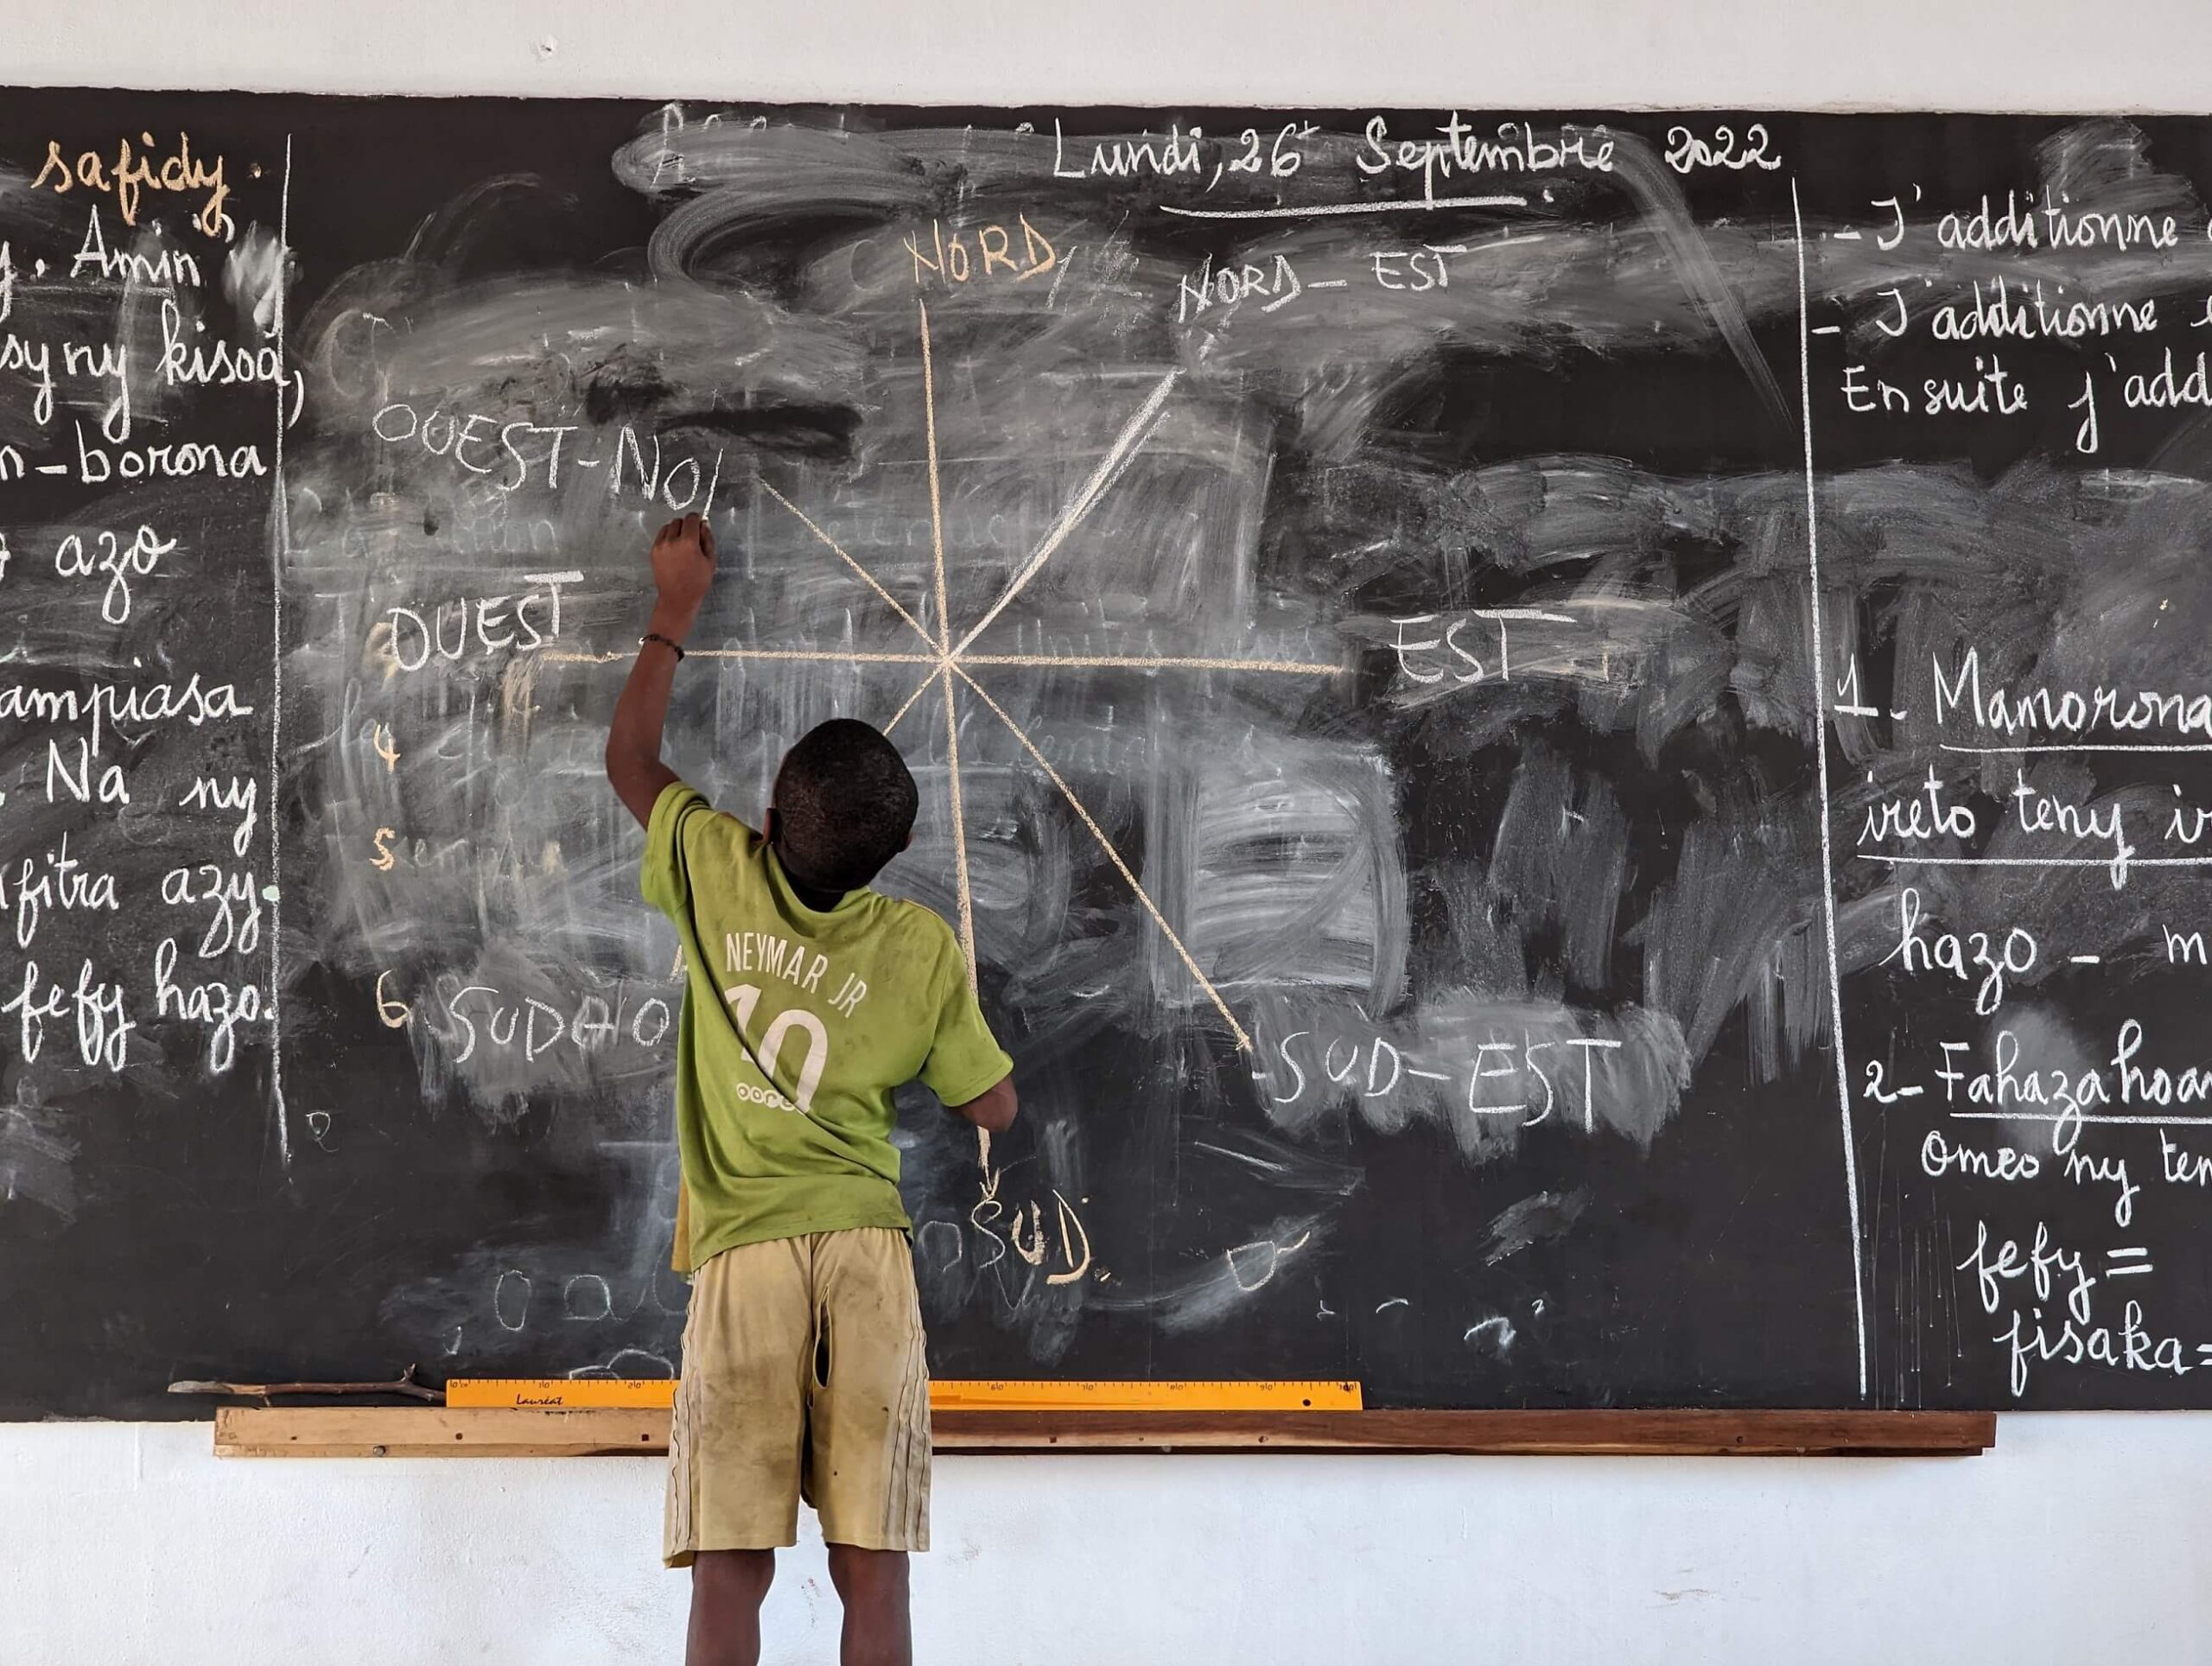 safidy.
Amin'ny
sy ny kisoa,
n-borona
azo
ampiasa
. Na ny
fitra azy.
fefy hazo.
Lundi, 26 Septembre 2022
NORD
NORD-EST
OUEST-NO
OUEST
EST
4
5
6
SUD-O
SUD-EST
SUD.
NEYMAR JR
10
Lauréat
- J'additionne
- J'additionne
Ensuite j'add
1. Mamorona
ireto teny ir
hazo - m
2- Fahazahoa
omeo ny ten
fefy =
fisaka =